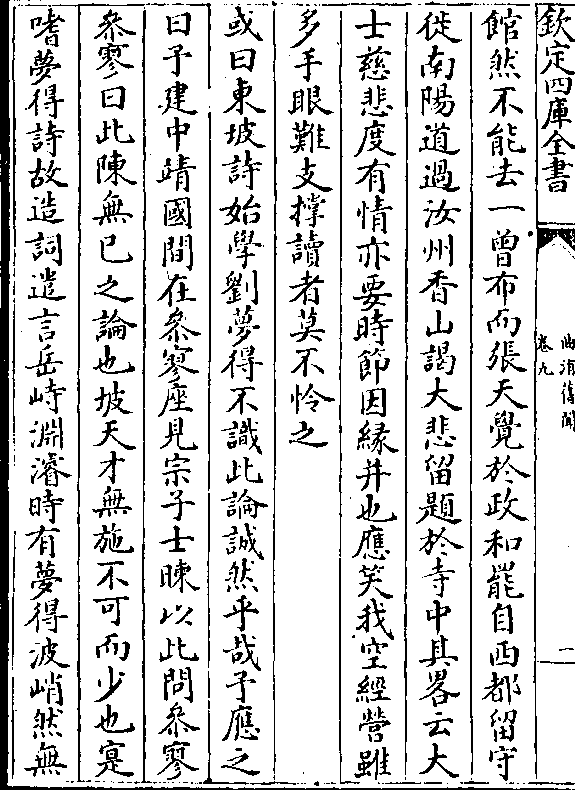 欽定四庫全書
曲洧舊聞
卷九
一
館然不能去一曽布而張天覺於政和罷自西都留守
徙南陽道過汝州香山謁大悲留題於寺中其畧云大
士慈悲度有情亦要時節因縁并也應笑我空經營雖
多手眼難支撑讀者莫不怜之
或曰東坡詩始學劉夢得不識此論誠然乎哉予應之
曰予建中靖國間在叅寥座見宗子士暕以此問叅寥
叅寥曰此陳無已之論也坡天才無施不可而少也寔
嗜夢得詩故造詞遣言岳峙淵濬時有夢得波峭然無